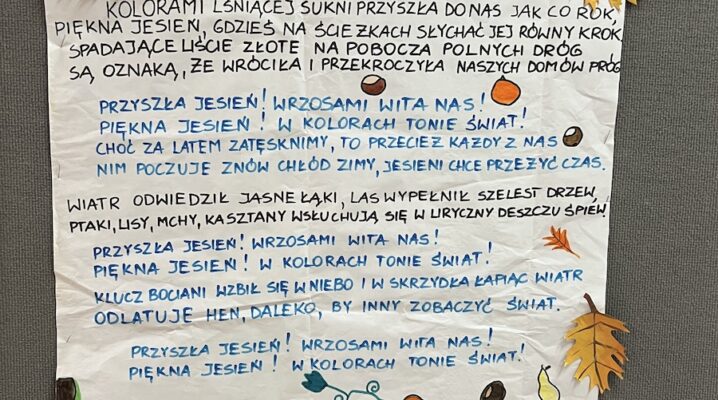 KOLORAMI LŚNIĄCEJ SUKNI PRZYSZŁA DO NAS JAK CO ROK,
PIĘKNA JESIEŃ, GDZIEŚ NA ŚCIEŻKACH SŁYCHAĆ JEJ RÓWNY KROK.
SPADAJĄCE LIŚCIE ZŁOTE NA POBOCZA POLNYCH DRÓG
SĄ OZNAKĄ, ŻE WRÓCIŁA I PRZEKROCZYŁA NASZYCH DOMÓW PRÓG
PRZYSZŁA JESIEŃ! WRZOSAMI WITA NAS!
PIĘKNA JESIEŃ! W KOLORACH TONIE ŚWIAT!
CHOĆ ZA LATEM ZATĘSKNIMY, TO PRZECIEŻ KAŻDY Z NAS
NIM POCZUJE ZNÓW CHŁÓD ZIMY, JESIENI CHCE PRZEŻYĆ CZAS.
WIATR ODWIEDZIŁ JASNE ŁĄKI, LAS WYPEŁNIŁ SZELEST DRZEW,
PTAKI, LISY, MCHY, KASZTANY WSŁUCHUJĄ SIĘ W LIRYCZNY DESZCZU ŚPIEW!
PRZYSZŁA JESIEŃ! WRZOSAMI WITA NAS!
PIĘKNA JESIEŃ! W KOLORACH TONIE ŚWIAT!
KLUCZ BOCIANI WZBIŁ SIĘ W NIEBO I W SKRZYDŁA ŁAPIĄC WIATR
ODLATUJE HEN, DALEKO, BY INNY ZOBACZYĆ ŚWIAT.
PRZYSZŁA JESIEŃ! WRZOSAMI WITA NAS!
PIĘKNA JESIEŃ! W KOLORACH TONIE ŚWIAT!